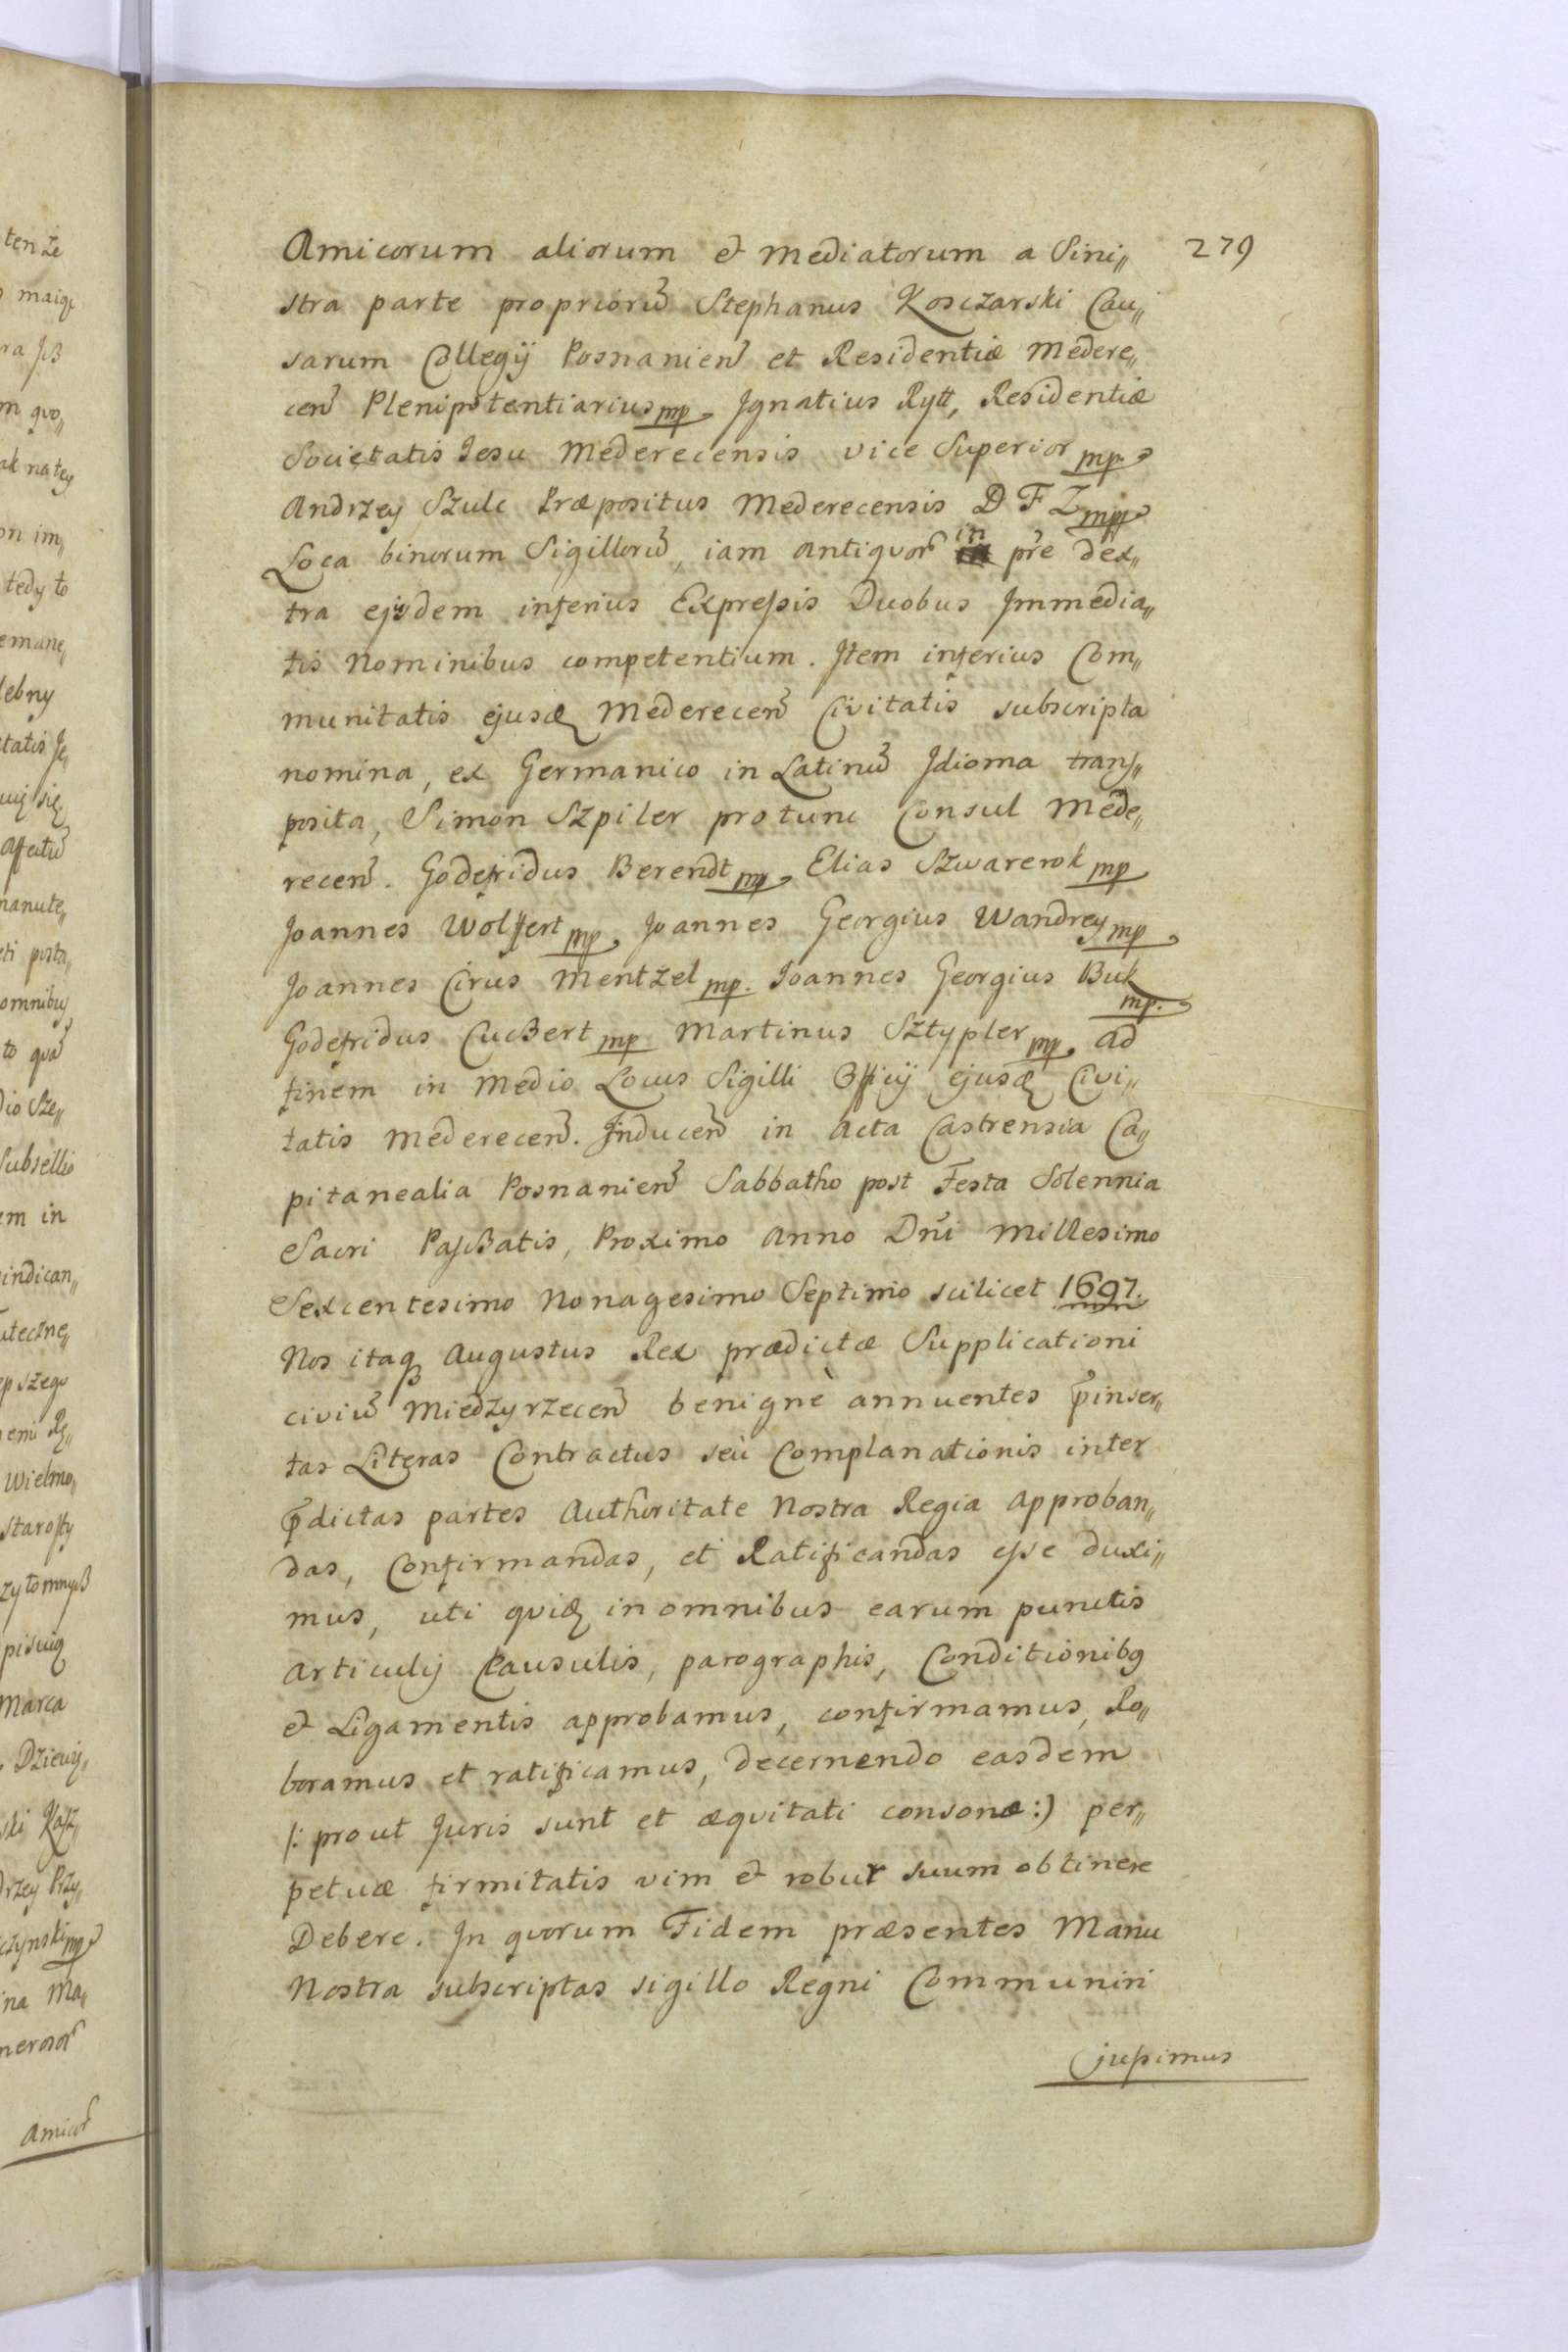 279
Amicorum aliorum et Mediatorum a Sini„
stra parte propriorū Stephanus Kosczarski Cau„
sarum Collegij Posnanien̄ et Residentiæ Medere„
cen̄ Plenipotentiarius mp Ignatius Rytt, Residentiæ
Societatis Jesu Mederecensis vice Superior mp.
Andrzey Szulc Præpositus Mederecensis D F Z mp
Loca binorum Sigillorū, iam antiquor̄ in pr̄e dex„
tra ejusdem inferius Expressis Duobus Immedia„
tis Nominibus competentium. Item inferius Com„
munitatis ejusdꝫ Mederecen̄ Civitatis subscripta
nomina, ex Germanico in Latinū Idioma trans„
posita, Simon Szpiler protunc Consul Mede„
recen̄. Godefridus Berendt mp Elias Szwarerok mp
Joannes Wolffert mp Joannes Georgius Wandrey mp
Joannes Cirus Mentzel mp. Joannes Georgius Buk mp.
Godefridus Cuchert mp Martinus Sztypler mp. ad
finem in Medio Locus Sigilli Officij ejusdꝫ Civi„
tatis Mederecen̄. Inducen̄ in Acta Castrensia Ca„
pitanealia Posnanien̄ Sabbatho post Festa Solennia
Sacri Paschatis, Proximo Anno Dn̄i Millesimo
Sexcentesimo Nonagesimo Septimo scilicet 1697.
Nos itaqꝫ Augustus Rex prædictæ Supplicationi
civiū Miedzyrzecen̄ benignè annuentes p̄inser„
tas Literas Contractus seu Complanationis inter
p̄dictas partes Authoritate Nostra Regia approban„
das, Confirmandas, et Ratificandas esse duxi„
mus, uti quidꝫ in omnibus earum punctis
articulis Clausulis, parographis, Conditionibꝫ
et Ligamentis approbamus, confirmamus, Ro„
boramus et ratificamus, decernendo easdem
/: prout Juris sunt et æquitati consonæ :) per„
petuæ firmitatis vim et robur suum obtinere
Debere. In quorum Fidem præsentes Manu
Nostra subscriptas sigillo Regni Communiri
jussimus